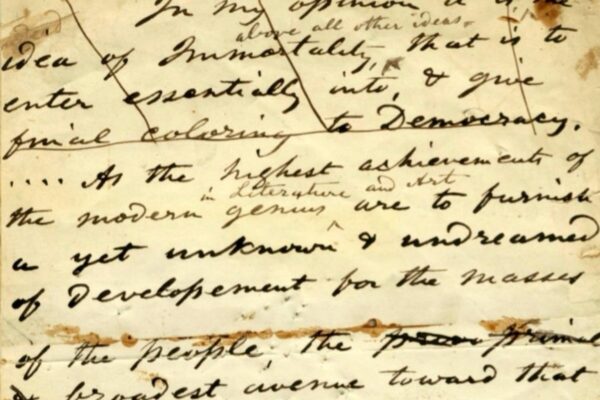 In my opinion it is the
above all other ideas,
idea of Immortality, that is to
enter essentially into, & give
final coloring to Democracy.
.... As the highest achievements of
in Literature and Art
the modern genius are to furnish
a yet unknown & undreamed
of developement for the masses
of the people the primal
& broadest avenue toward that